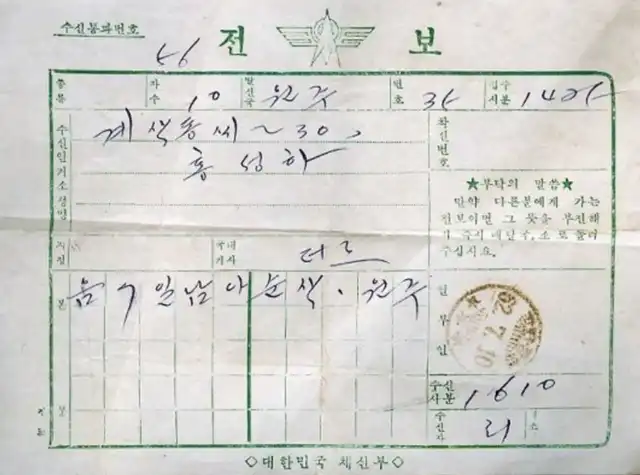 수신통과번호
46
전 보
종류 자수 10 발신국 원주 번호 34 접수시분 1424
수신인거소성명
30,
홍성하
착신번호
★부탁의 말씀★
만약 다른분에게 가는
전보이면 그 뜻을 부전해
즉시 배달부 로 돌려
주십시요.
지정 국내기사
본 음 7 일 남 아 순 색 . 원 주
일부인
32.7.10
수신시분 1610
수신자 리
◇대한민국 체신부◇